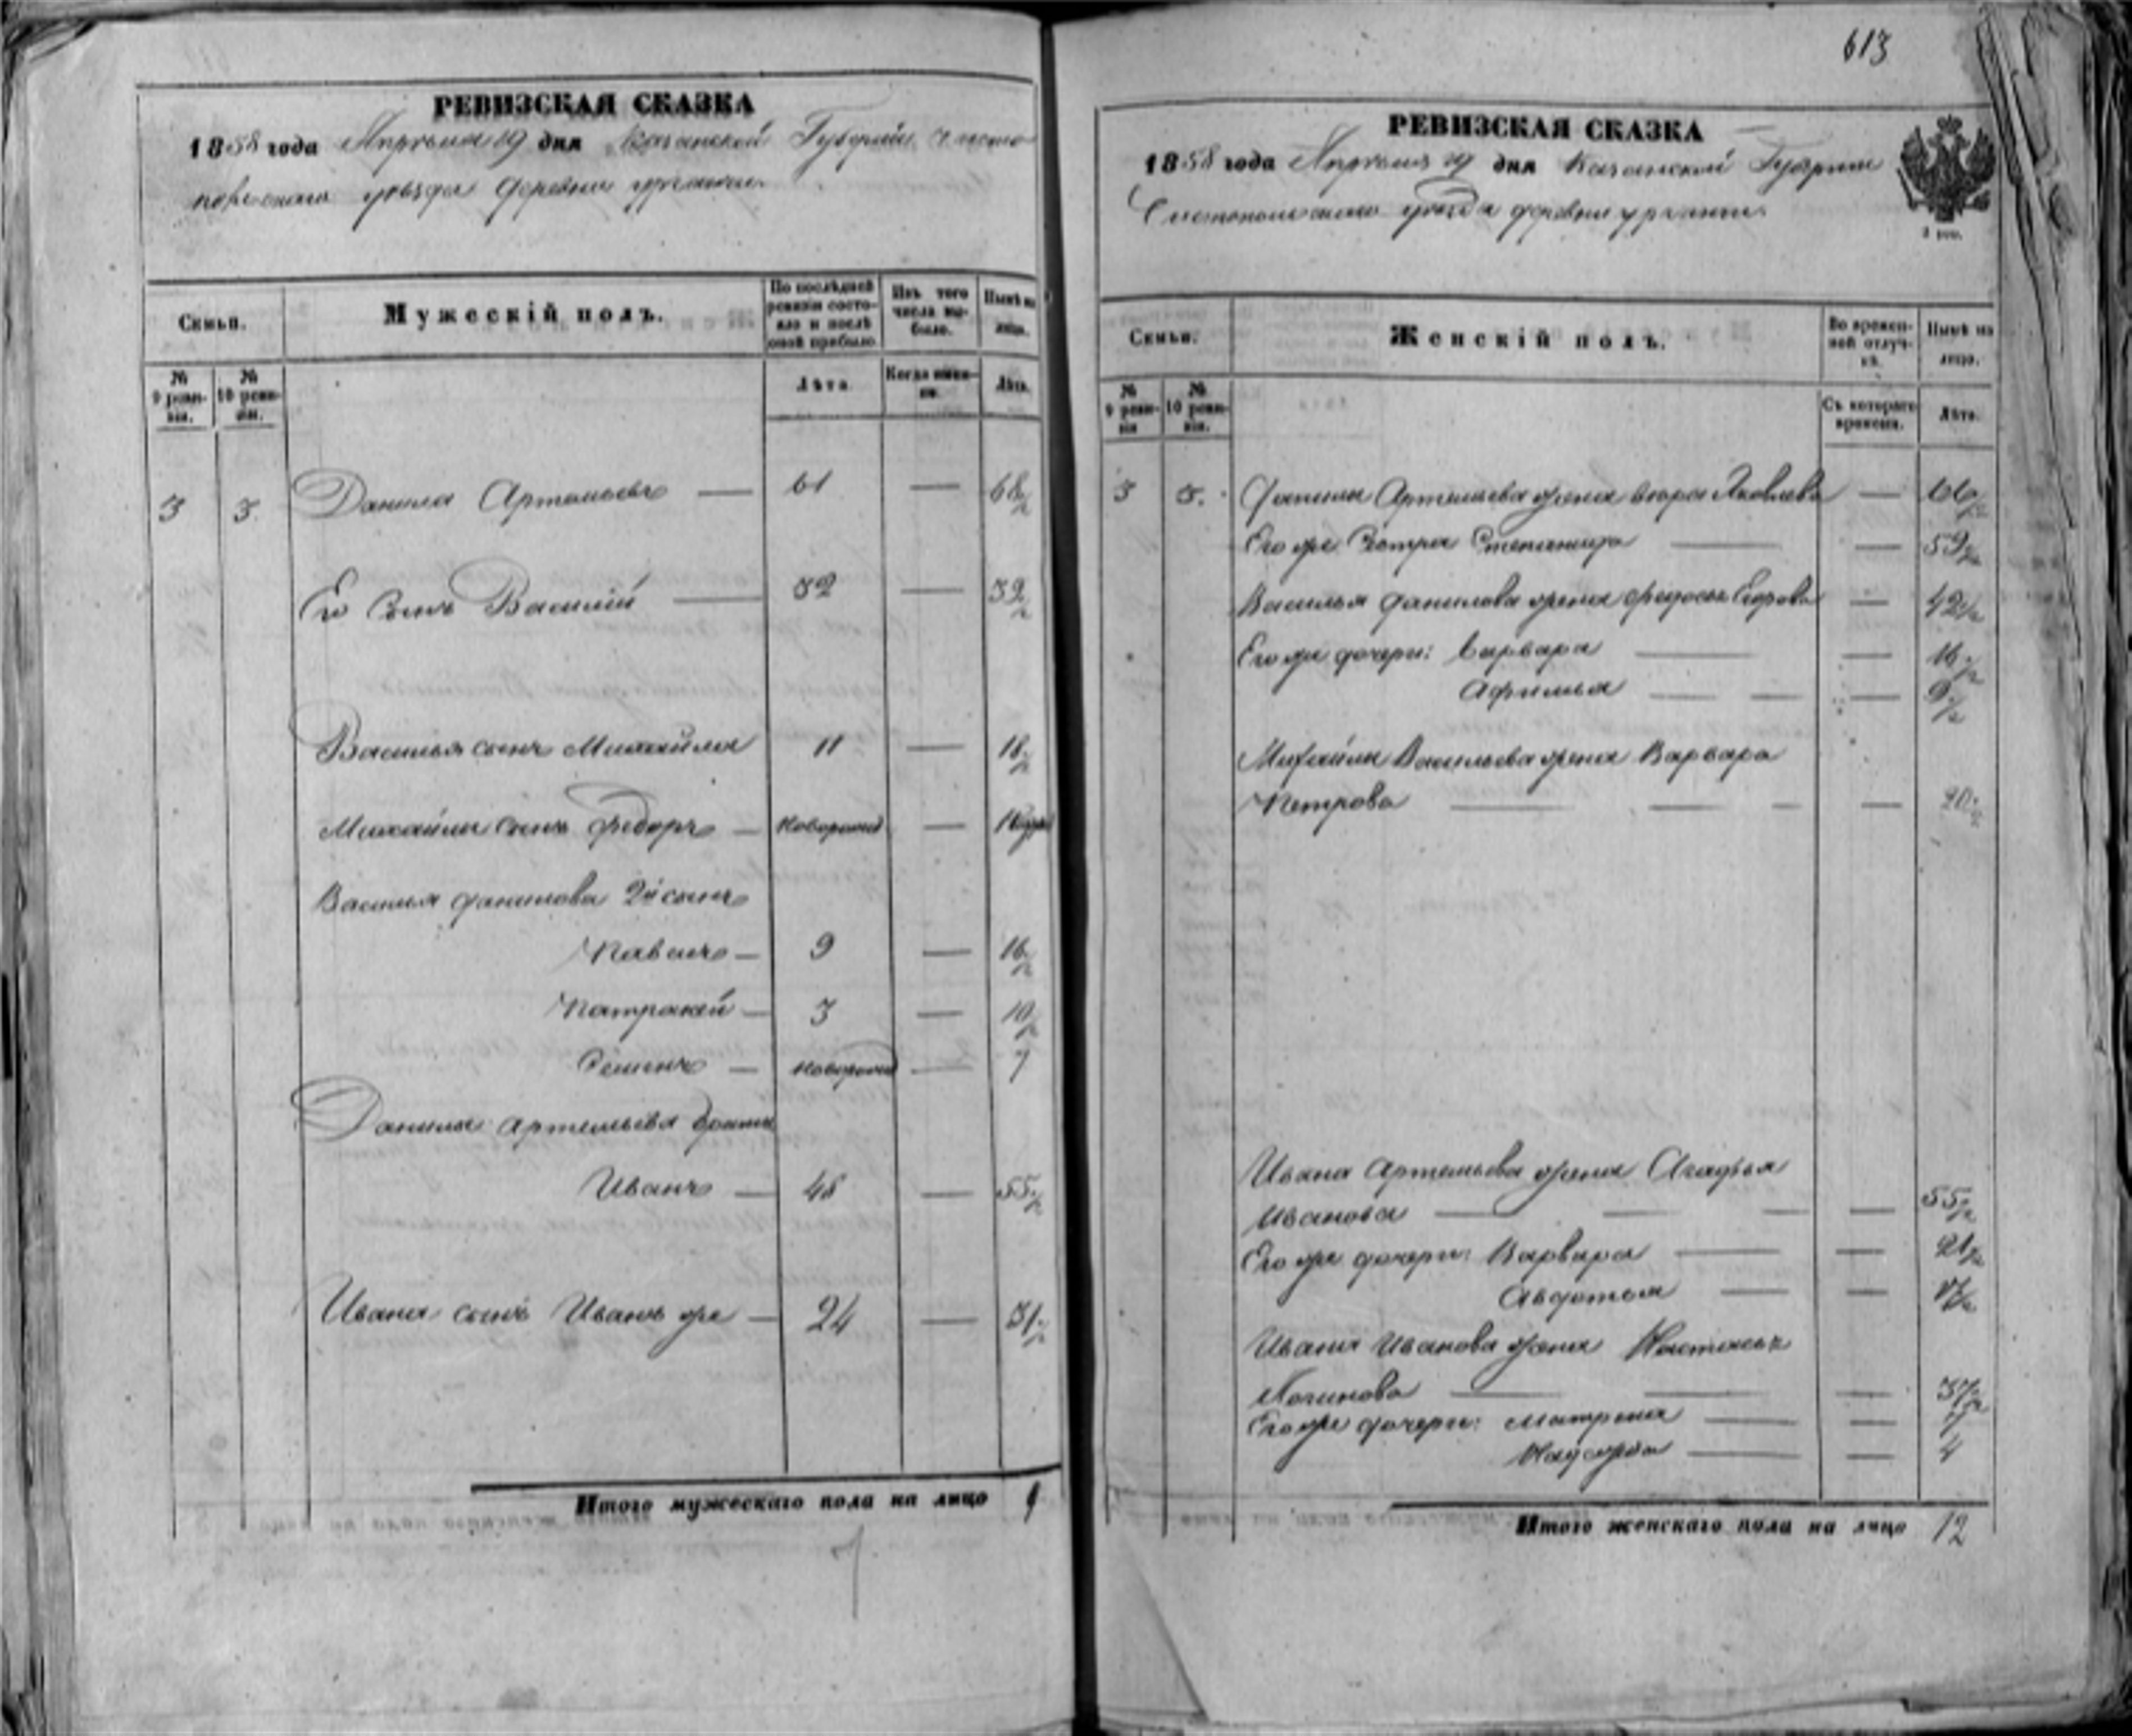 613
РЕВИЗСКАЯ СКАЗКА
1858 года Апреля 19 дня Казанской Губернии Чисто
польскаго уезда деревни
Семьи.
Мужескій полъ.
По послѣдней ревизіи состояло и послѣ оной прибыло.
Изъ того числа выбыло.
Нынѣ на лицо.
№ 9 ревизіи.
№ 10 ревизіи.
Лѣта.
Когда именно.
Лѣта.
3 3 Данила Артемьевъ — 61 — 68½
Его сынъ Василий — 32 — 39½
Василья сынъ Михайла 11 — 18½
Михайлы сынъ Федоръ — новорожд —
Василья Данилова 2й сынъ
Павелъ — 9 — 16½
Патракей — 3 — 10½
Семенъ — новорожд — 7
Данилы Артемьева братъ
Иванъ — 48 — 55½
Ивана сынъ Иванъ же — 24 — 31½
Итого мужескаго пола на лицо 9
РЕВИЗСКАЯ СКАЗКА
1858 года Апреля 19 дня Казанской Губернии
Чистопольскаго уезда деревни
Семьи.
Женскій полъ.
Во временной отлучкѣ.
Нынѣ на лицо.
№ 9 ревизіи
№ 10 ревизіи.
Съ котораго времени.
Лѣта.
3 3. Данилы Артемьева жена Яковлева — 66½
Его же сестра Степанида — 59½
Василья Данилова жена Федосья Егорова — 42½
Его же дочери: Варвара — 16½
Афимья — 9½
Михайлы Васильева жена Варвара
Петрова — 20½
Ивана Артемьева жена Агафья
Иванова — 55½
Его же дочери: Варвара — 21½
Авдотья — 17½
Ивана Иванова жена Настасья
Логинова — 37½
Его же дочери: Матрена — 7
Надежда — 4
Итого женскаго пола на лицо 12